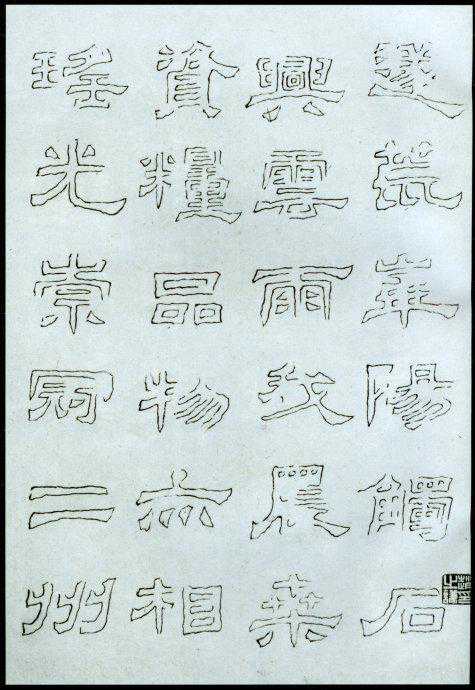 遂荒華陽觸石
興雲雨我農桑
資糧品物亦相
瑤光崇冠二州